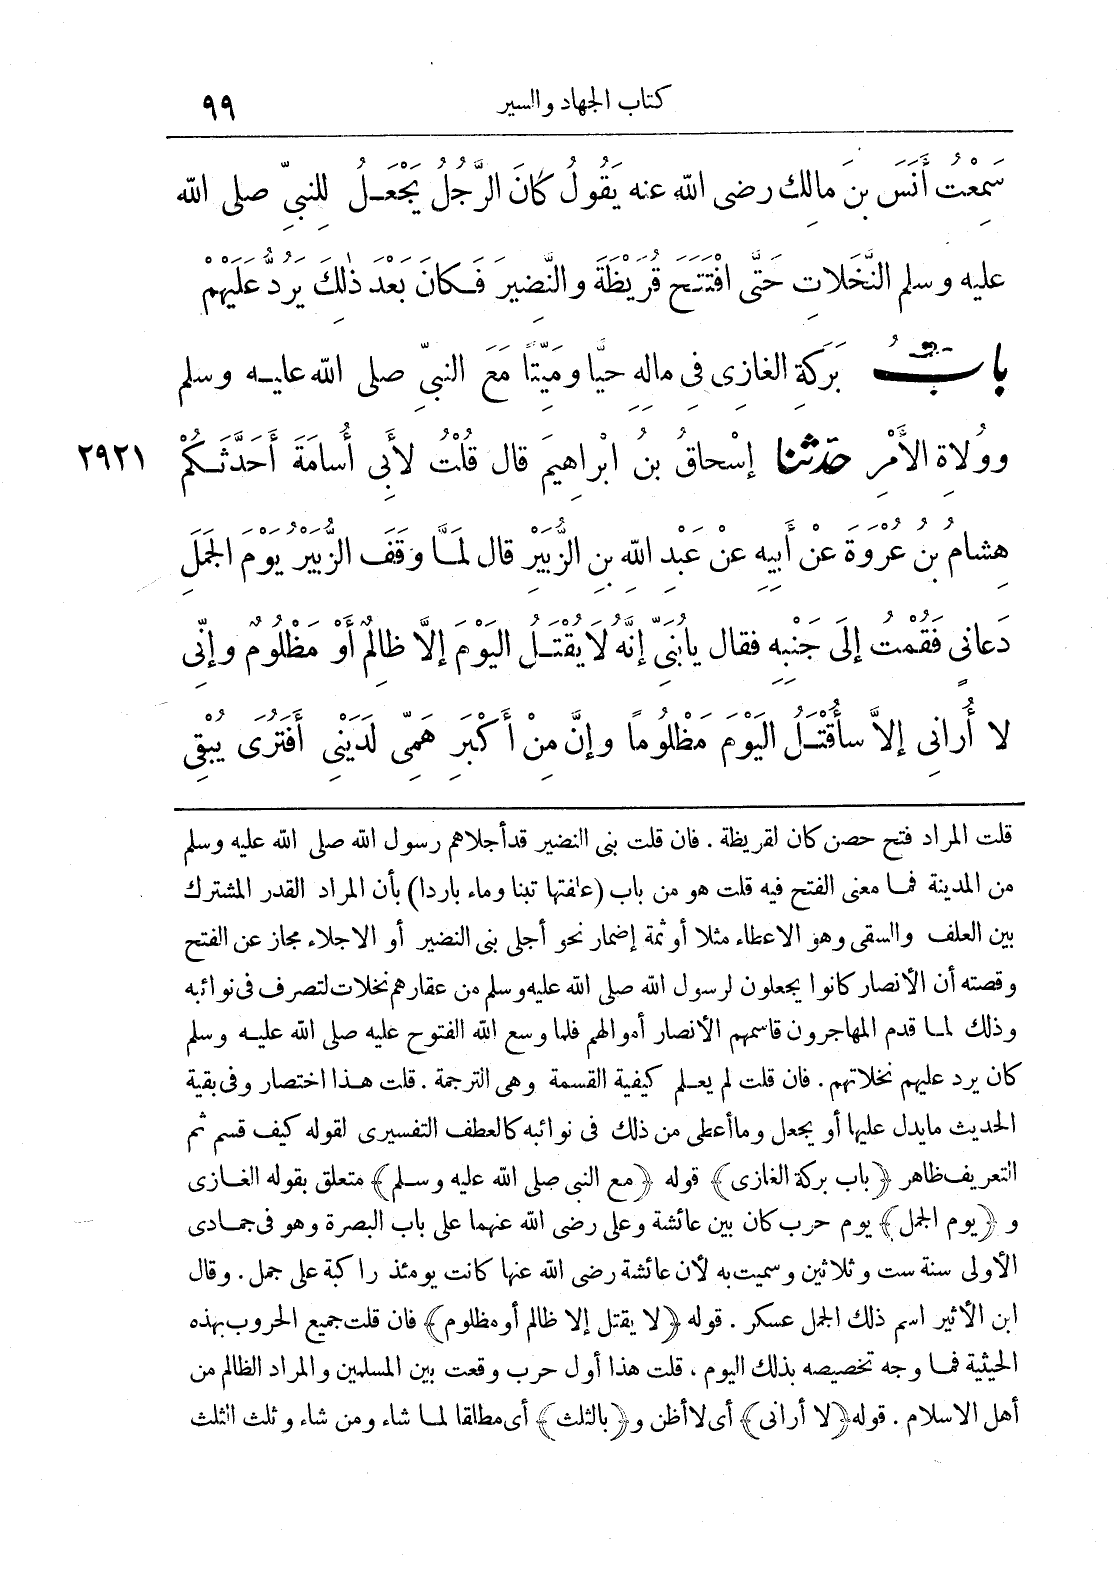 كتاب الجهاد والسير ٩٩
سَمِعْتُ أَنَسَ بنَ مالِك رضى الله عنه يَقُولُ كَانَ الرَّجُلُ يَجْعَلُ للنبيِّ صلى الله
عليه وسلم النَّخَلاتِ حَتَّى افْتَتَحَ قُرَيْظَةَ والنَّضِيرَ فَكانَ بَعْدَ ذٰلِكَ يَرُدُّ عَلَيْهِمْ
بابُ بَرَكَةِ الغازِى فى مالِهِ حيًّا ومَيِّتًا مَعَ النبيِّ صلى الله عليه وسلم
ووُلاةِ الأَمْرِ حَدَّثَنا إسْحاقُ بنُ ابْراهِيمَ قال قُلْتُ لأَبِى أُسامَةَ أَحَدَّثَكُمْ ٢٩٢١
هِشامُ بنُ عُرْوَةَ عنْ أَبِيهِ عنْ عَبْدِ الله بنِ الزُّبَيْرِ قال لَمَّا وقَفَ الزُّبَيْرُ يَوْمَ الجَمَلِ
دَعانِى فَقُمْتُ إلَى جَنْبِهِ فقال يابُنَىِّ إنَّهُ لا يُقْتَلُ اليَوْمَ إلاَّ ظالِمٌ أَوْ مَظْلُومٌ وإنِّى
لا أُرانِى إلاَّ سأُقْتَلُ اليَوْمَ مَظْلُومًا وإنَّ مِنْ أَكْبَرِ هَمِّى لَدَيْنِى أَفَتُرَى يُبْقِى
قلت المراد فتح حصن كان لقريظة . فان قلت بنى النضير قد أجلاهم رسول الله صلى الله عليه وسلم
من المدينة فما معنى الفتح فيه قلت هو من باب (علفتها تبنا وماء باردا) بأن المراد القدر المشترك
بين العلف والسقى وهو الاعطاء مثلا أو ثمة إضمار نحو أجلى بنى النضير أو الاجلاء مجاز عن الفتح
وقصته أن الأنصار كانوا يجعلون لرسول الله صلى الله عليه وسلم من عقارهم نخلات لتصرف فى نوائبه
وذلك لما قدم المهاجرون قاسمهم الأنصار أموالهم فلما وسع الله الفتوح عليه صلى الله عليه وسلم
كان يرد عليهم نخلاتهم . فان قلت لم يعلم كيفية القسمة وهى الترجمة . قلت هذا اختصار وفى بقية
الحديث مايدل عليها أو يجعل وما أعطى من ذلك فى نوائبه كالعطف التفسيرى لقوله كيف قسم ثم
التعريف ظاهر ﴿باب بركة الغازى﴾ قوله ﴿مع النبى صلى الله عليه وسلم﴾ متعلق بقوله الغازى
و ﴿يوم الجمل﴾ يوم حرب كان بين عائشة وعلى رضى الله عنهما على باب البصرة وهو فى جمادى
الأولى سنة ست وثلاثين وسميت به لأن عائشة رضى الله عنها كانت يومئذ راكبة على جمل . وقال
ابن الأثير اسم ذلك الجمل عسكر . قوله ﴿لا يقتل إلا ظالم أو مظلوم﴾ فان قلت جميع الحروب بهذه
الحيثية فما وجه تخصيصه بذلك اليوم . قلت هذا أول حرب وقعت بين المسلمين والمراد الظالم من
أهل الاسلام . قوله ﴿لا أرانى﴾ أى لا أظن و﴿بالثلث﴾ أى مطلقا لما شاء ومن شاء وثلث الثلث